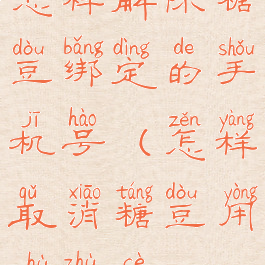 怎样解除糖
dòu bǎng dìng de shǒu
豆绑定的手
jī hào zěn yàng
机号（怎样
qǔ xiāo táng dòu yòng
取消糖豆用
hù zhù cè